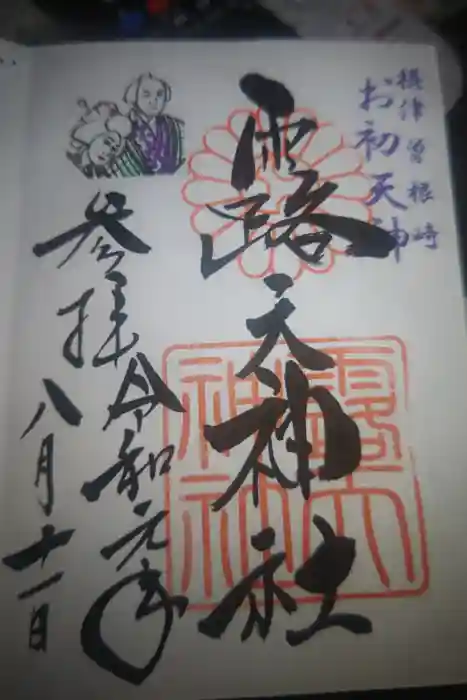 摂津曽根崎
お初天神
露天神社
露天
神社
参拝
令和元年
八月十一日